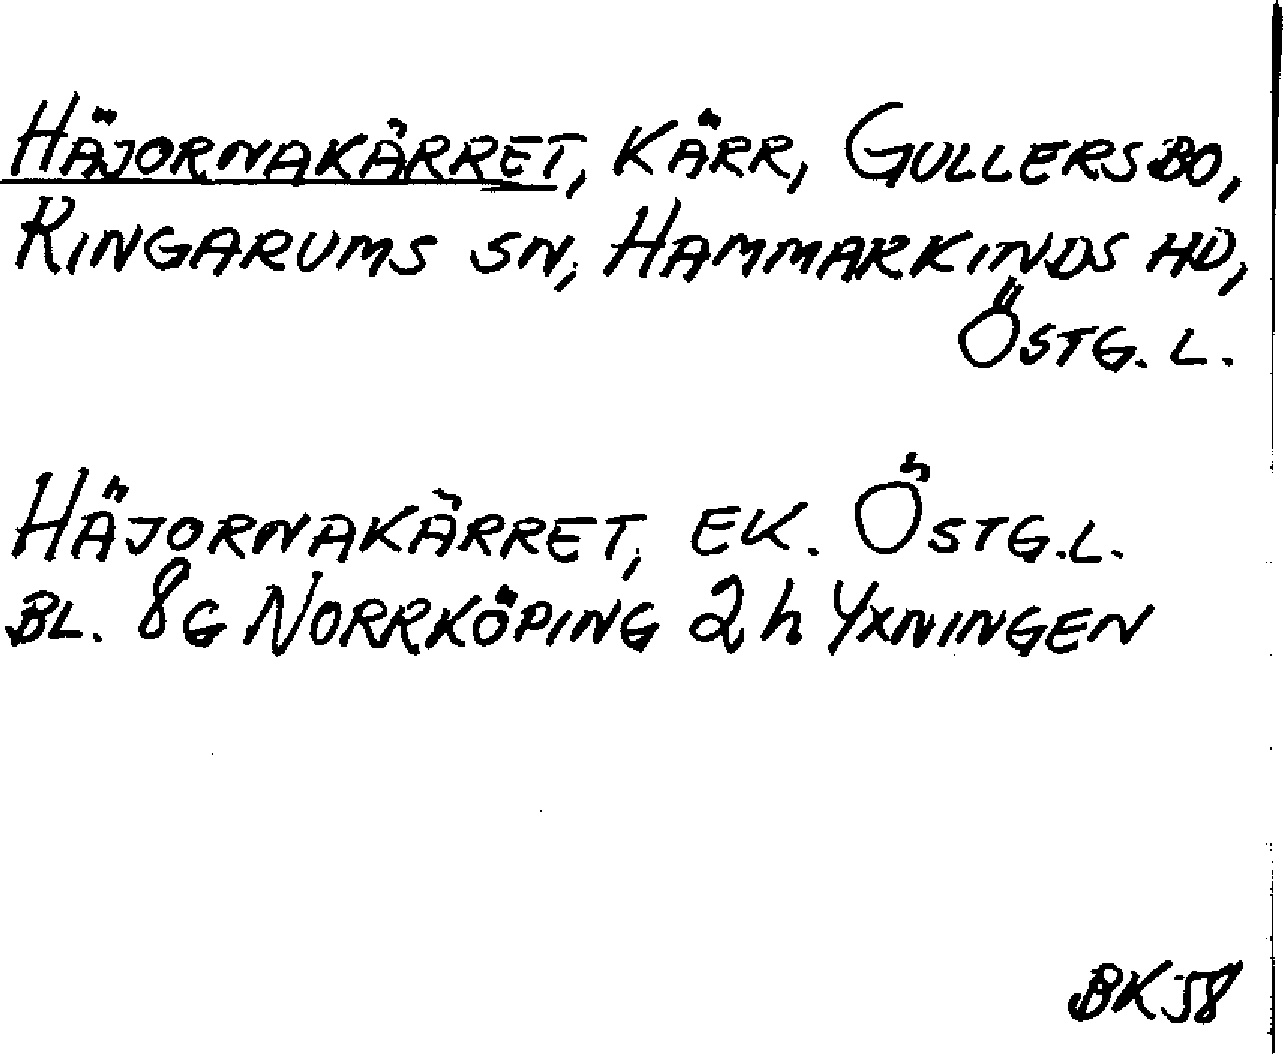 HÄJORNAKÄRRET, KÄRR, GULLERSBO,
RINGARUMS SN, HAMMARKINDS HD,
ÖSTG. L.
HÄJORNAKÄRRET, EK. ÖSTG.L.
BL. 8G NORRKÖPING 2h YXNINGEN
BK58